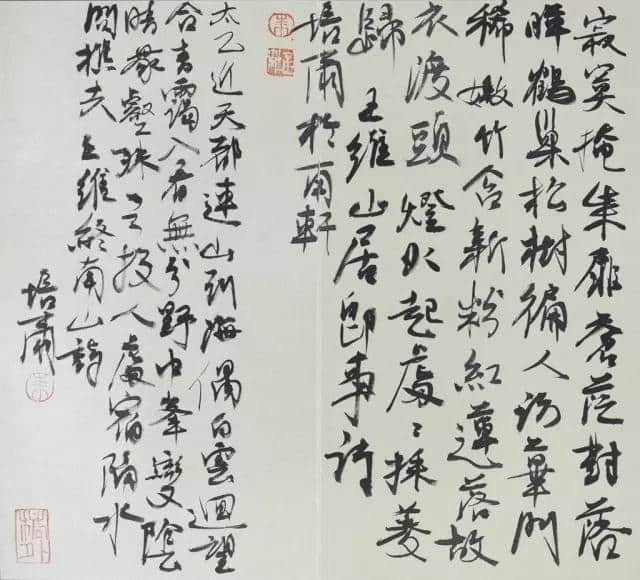 寂寞掩柴扉蒼茫對落
暉鶴巢松樹徧人訪蓽門
稀嫩竹含新粉紅蓮落故
衣渡頭燈火起處〻採菱
歸 王維山居即事詩
培於軒
太乙近天都連山到海隅白雲迴望
合青靄入看無分野中峯變陰
晴衆壑殊欲投人處宿隔水
問樵夫王維終南山詩
培